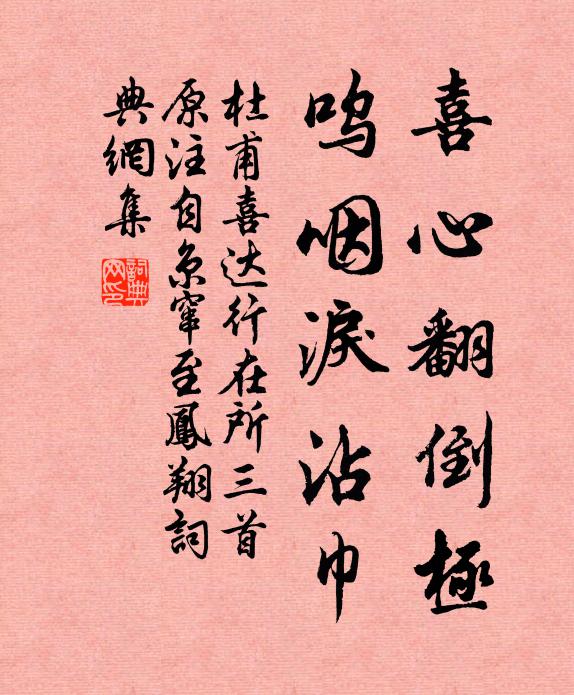 喜心翻倒極
呜咽淚沾巾
杜甫喜达行在所三首
原注自京窜至鳳翔詞
典網集
詞典网印